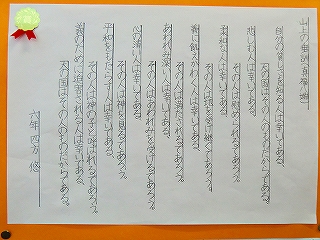 山上の垂訓(真福八端)
自分の貧しさを知る人は幸いである、
天の国はその人のものだからである。
悲しむ人は幸いである、
その人は慰められるであろう。
柔和な人は幸いである、
その人は地を受け継ぐであろう。
義に飢えかわく人は幸いである、
その人は満たされるであろう。
あわれみ深い人は幸いである、
その人はあわれみを受けるであろう。
心の清い人は幸いである、
その人は神を見るであろう。
平和をもたらす人は幸いである、
その人は神の子と呼ばれるであろう。
義のために迫害される人は幸いである、
天の国はその人のものだからである。
六年 四方 悠